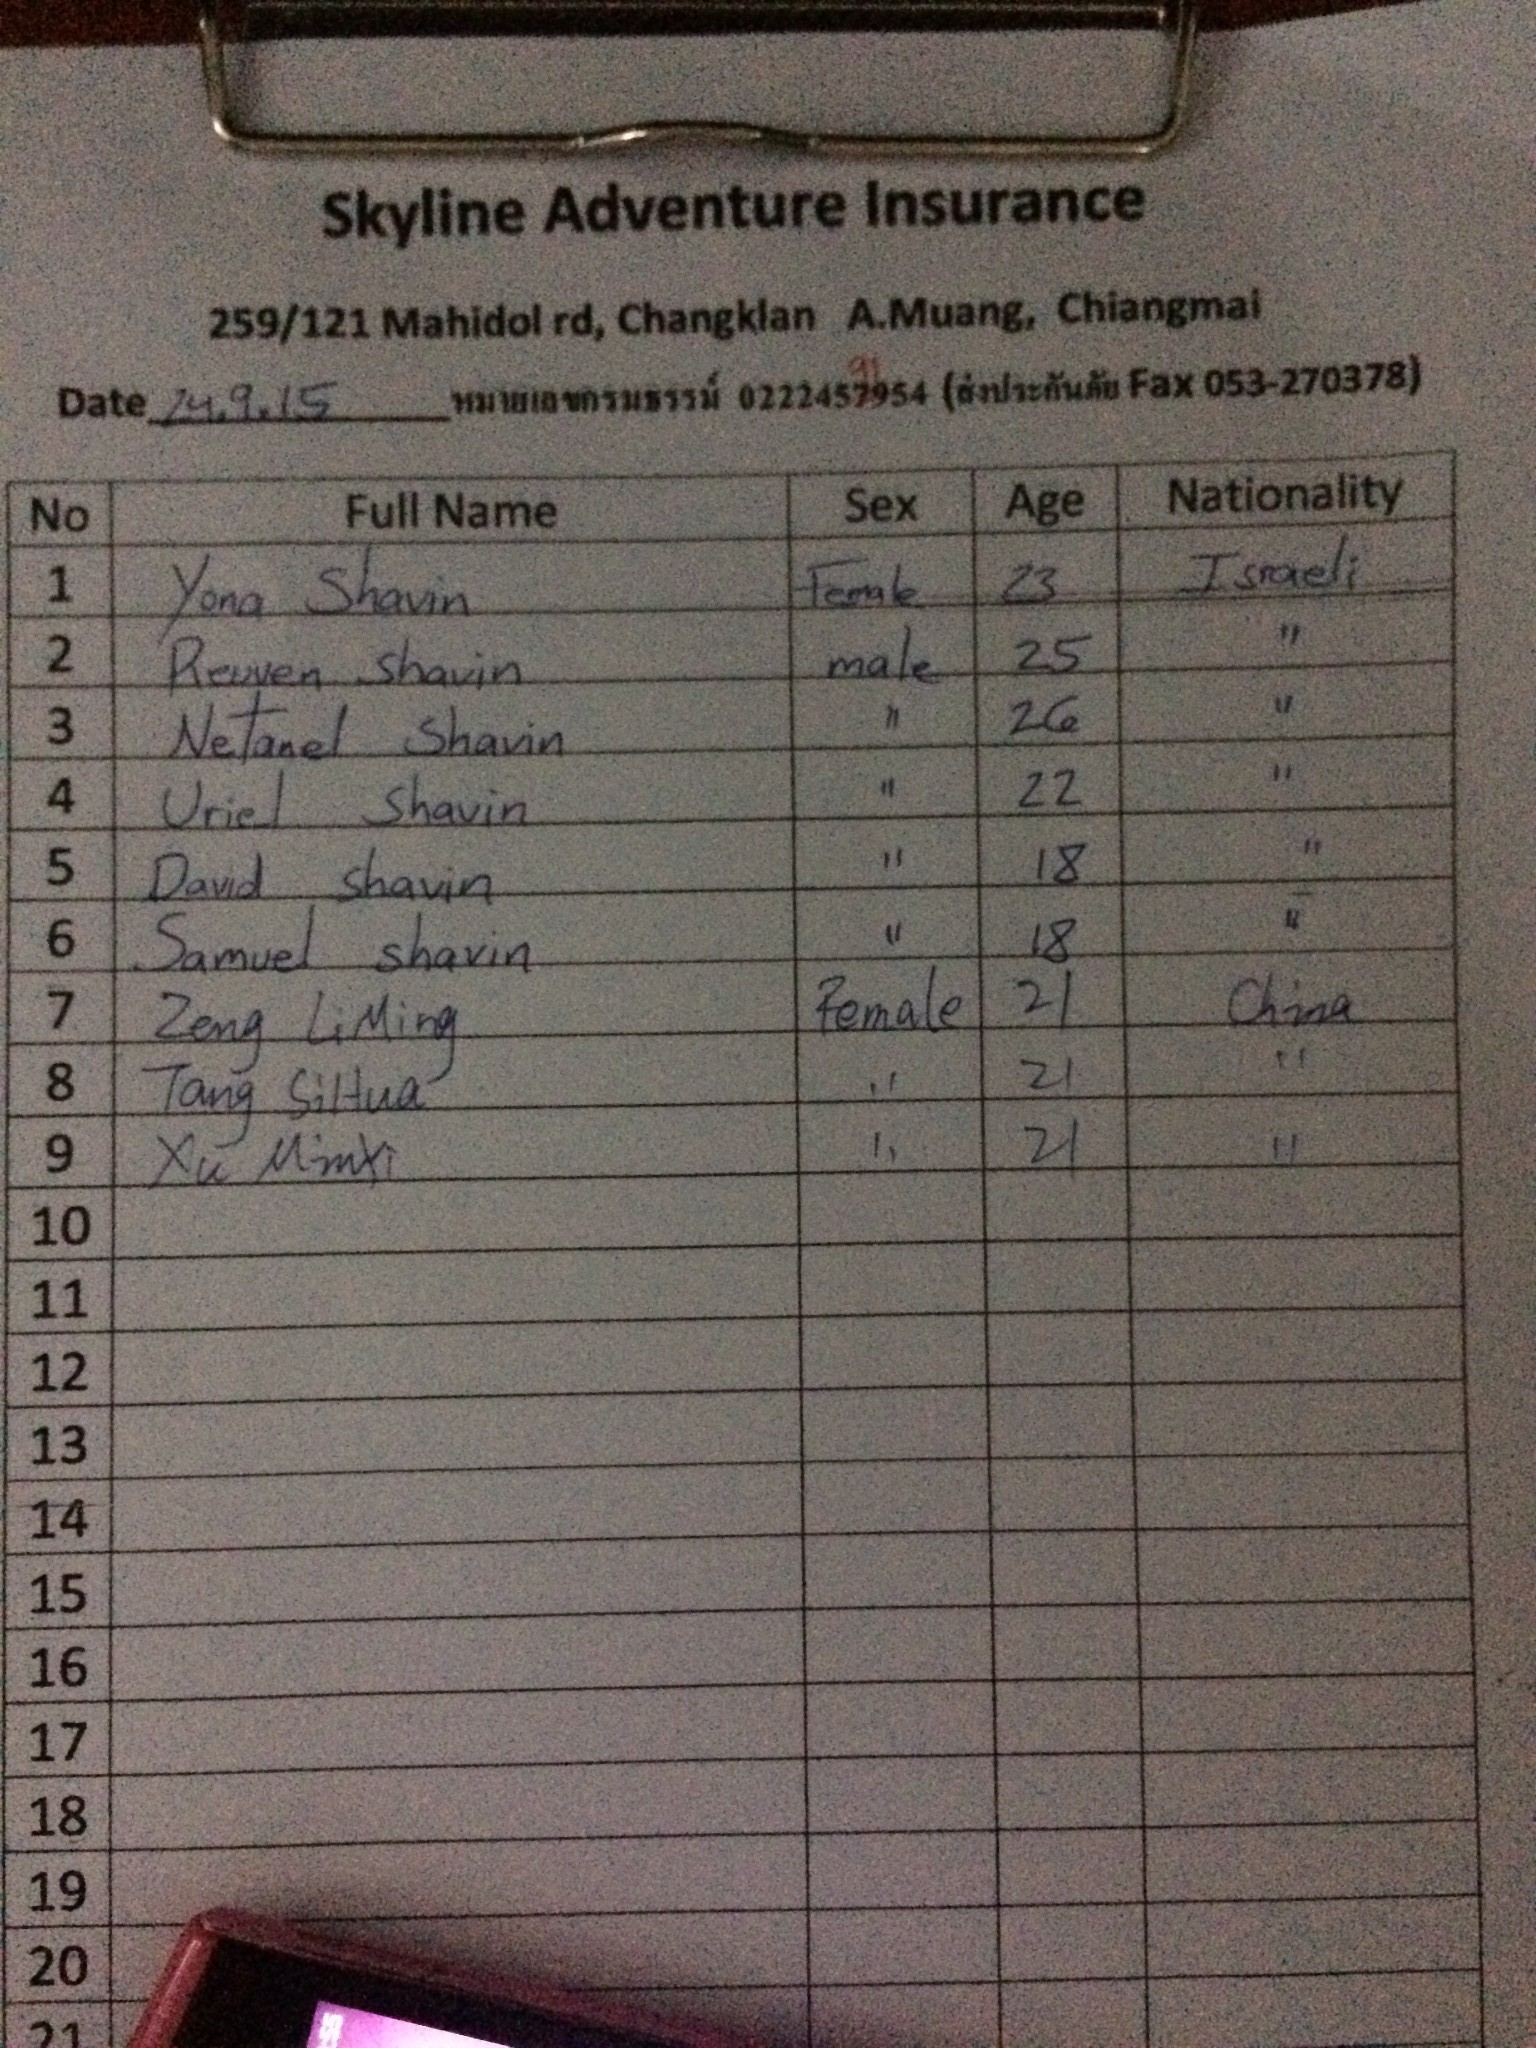 Skyline Adventure Insurance
259/121 Mahidol rd, Changklan A.Muang, Chiangmai
Date 24.9.15 หมายเลขกรมธรรม์ 0222457954 (ส่งประกันภัย Fax 053-270378)
91
No Full Name Sex Age Nationality
1 Yona Shavin Female 23 Israeli
2 Reuven Shavin male 25 "
3 Netanel Shavin " 26 "
4 Uriel Shavin " 22 "
5 David Shavin " 18 "
6 Samuel shavin " 18 "
7 Zeng LiMing Female 21 China
8 Tang SiHua " 21 "
9 Xu MinXi " 21 "
10
11
12
13
14
15
16
17
18
19
20
21